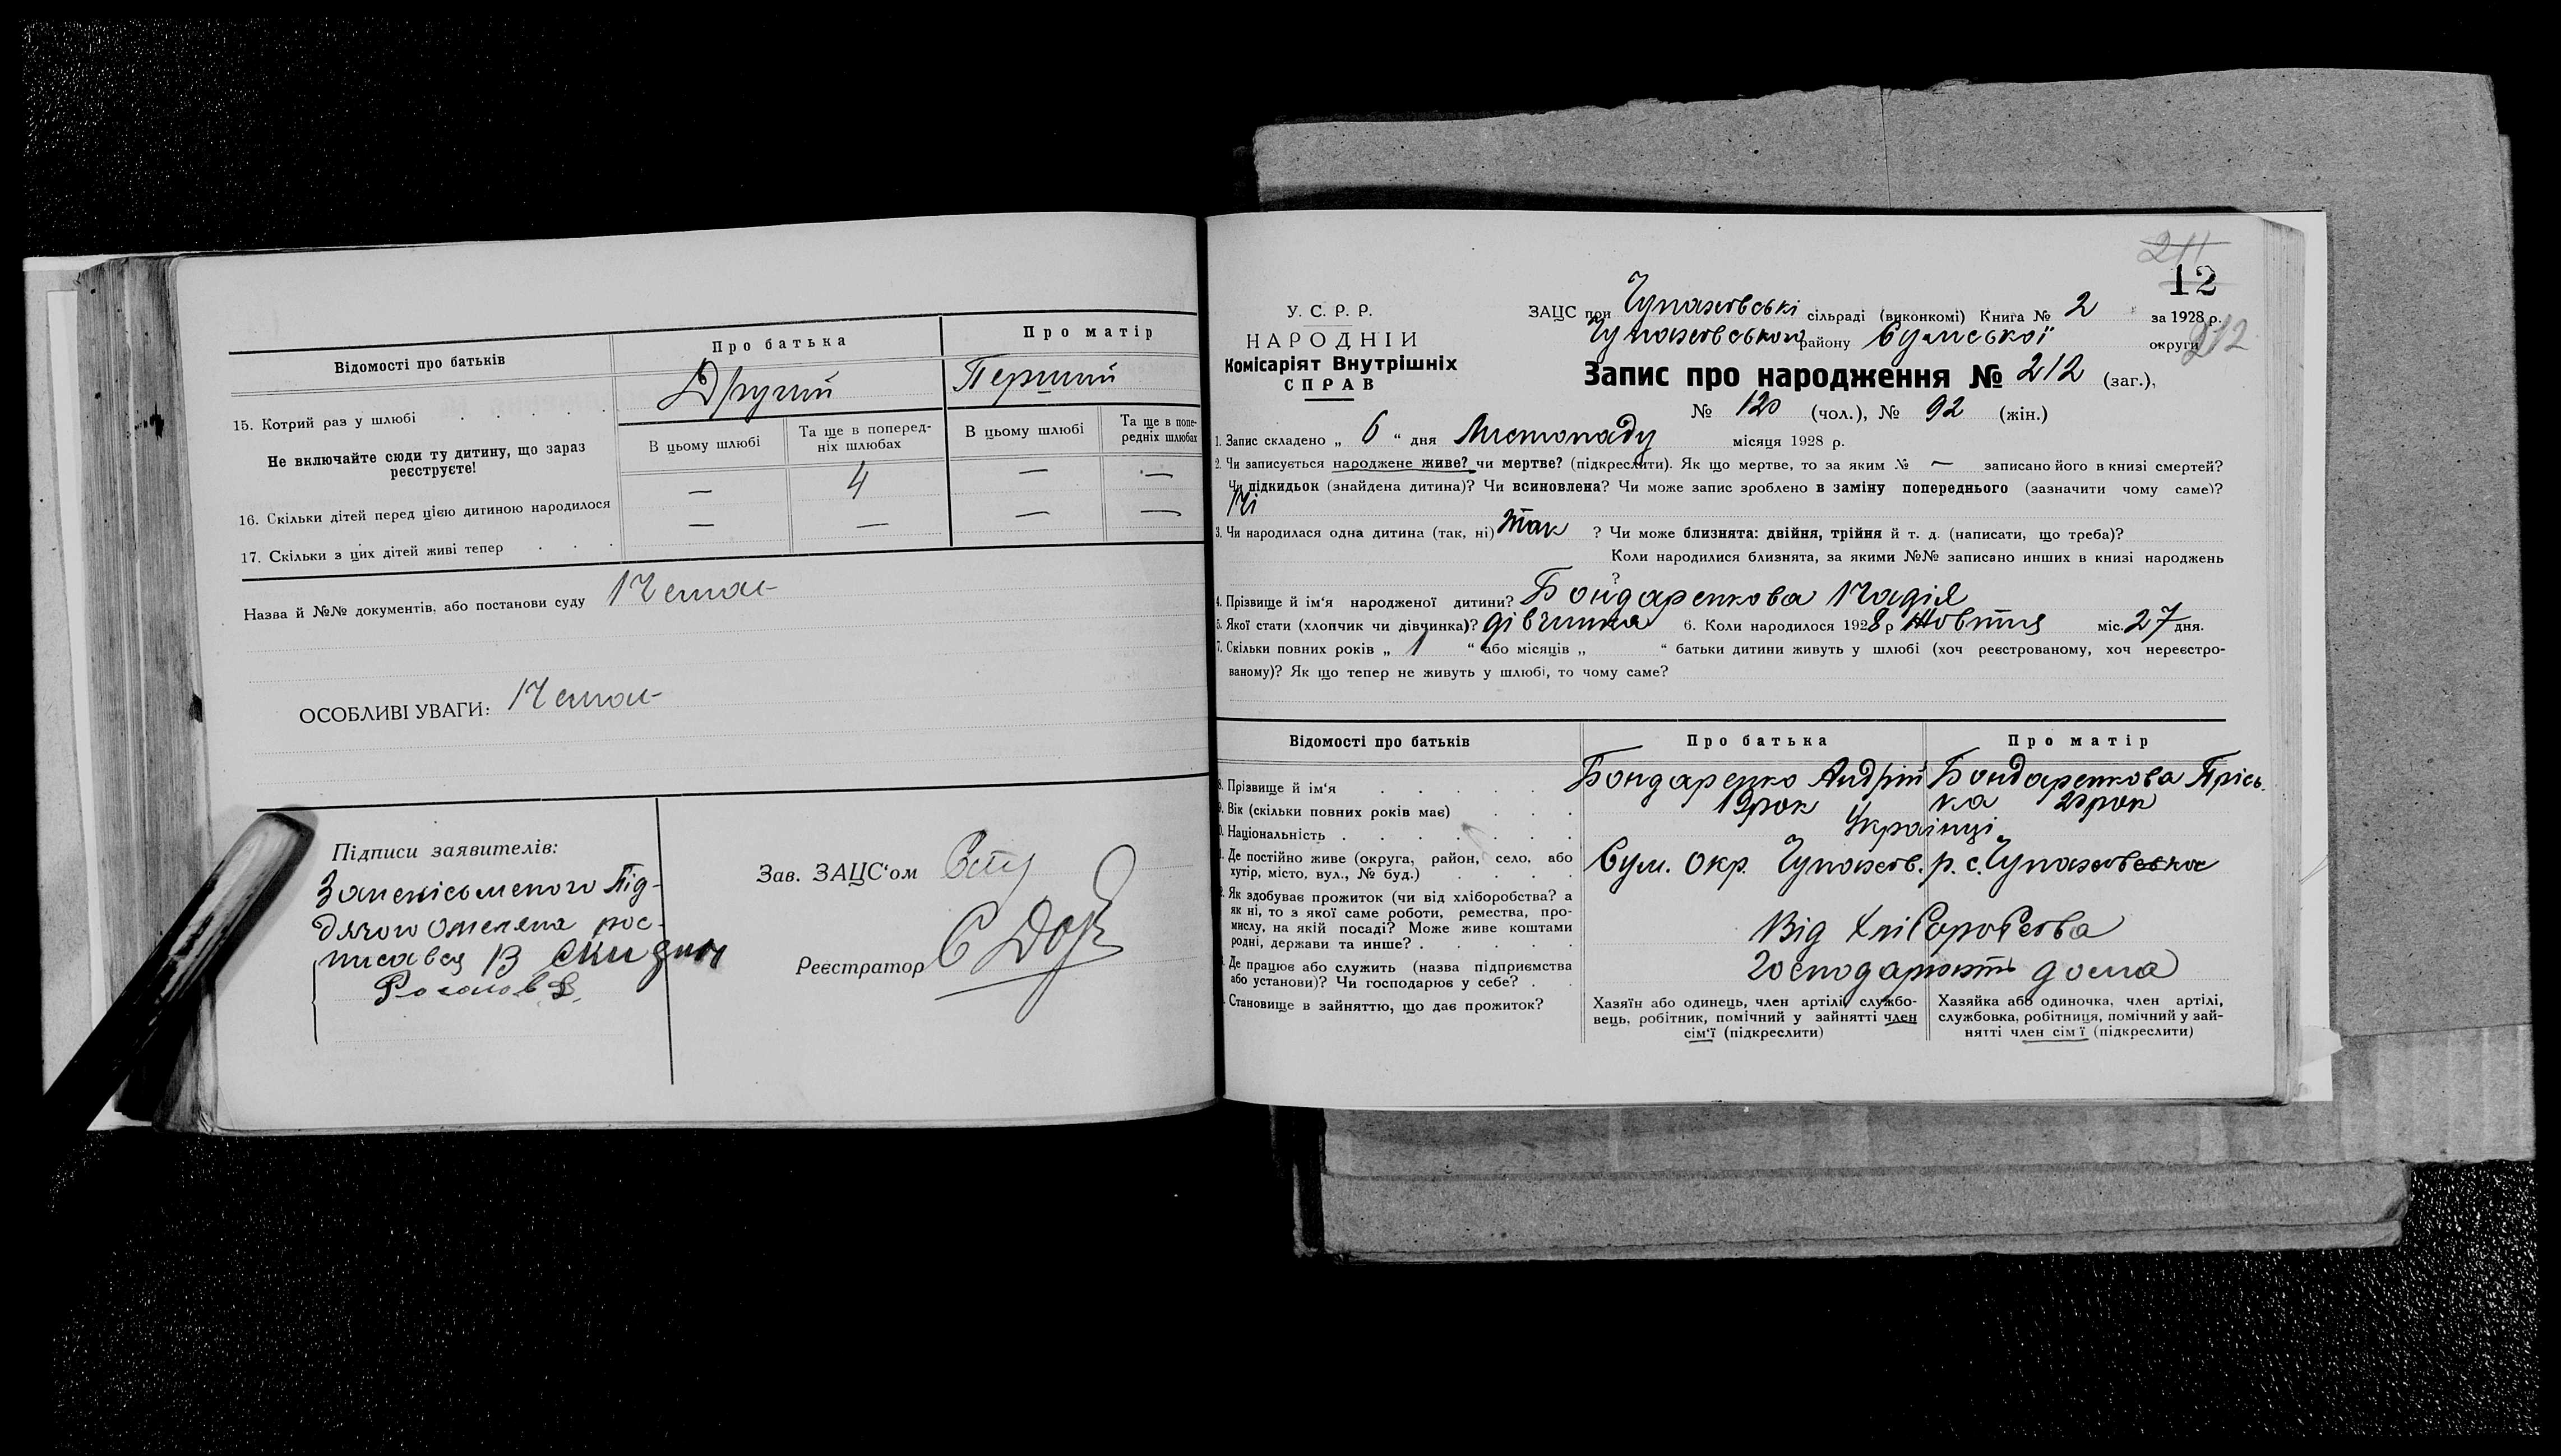 Відомості про батьків
Про батька
Про матір
15. Котрий раз у шлюбі
Другий
Перший
Не включайте сюди ту дитину, що зараз реєструєте!
В цьому шлюбі
Та ще в поперед-
ніх шлюбах
В цьому шлюбі
Та ще в попе-
редніх шлюбах
16. Скільки дітей перед цією дитиною народилося
— 4 — —
17. Скільки з цих дітей живі тепер
— — — —
Назва й №№ документів, або постанови суду Немає
ОСОБЛИВІ УВАГИ: Немає
Підписи заявителів:
За неписьменого Під-
дячого Омеляна рос-
писався В
Зав. ЗАЦС'ом
Реєстратор
211
12
212
У. С. Р. Р.
НАРОДНІЙ
Комісаріят Внутрішніх
СПРАВ
ЗАЦС при Чупахівські сільраді (виконкомі) Книга № 2 за 1928 р.
Чупахівського району Сумської округи
Запис про народження № 212 (заг.),
№ 120 (чол.), № 92 (жін.)
1. Запис складено „ 6 “ дня Листопаду місяця 1928 р.
2. Чи записується народжене живе? чи мертве? (підкреслити). Як що мертве, то за яким № — записано його в книзі смертей?
Чи підкидьок (знайдена дитина)? Чи всиновлена? Чи може запис зроблено в заміну попереднього (зазначити чому саме)?
Ні
3. Чи народилася одна дитина (так, ні) так ? Чи може близнята: двійня, трійня й т. д. (написати, що треба)?
Коли народилися близнята, за якими №№ записано инших в книзі народжень
?
4. Прізвище й ім'я народженої дитини? Бондаренкова Надія
5. Якої стати (хлопчик чи дівчинка)? дівчинка 6. Коли народилося 1928 р Жовтня міс. 27 дня.
7. Скільки повних років „ 1 “ або місяців „ “ батьки дитини живуть у шлюбі (хоч реєстрованому, хоч нереєстро-
ваному)? Як що тепер не живуть у шлюбі, то чому саме?
Відомості про батьків
Про батька
Про матір
8. Прізвище й ім'я
Бондаренко Андрій
Бондаренкова Прісь-
ка
9. Вік (скільки повних років має)
19 рок
20 рок
0. Національність
Українці
1. Де постійно живе (округа, район, село, або
хутір, місто, вул., № буд.)
Сум. Окр. Чупахів. р. с. Чупахівка
2. Як здобуває прожиток (чи від хліборобства? а
як ні, то з якої саме роботи, ремества, про-
мислу, на якій посаді? Може живе коштами
родні, держави та инше?
Від Хліборобства
Де працює або служить (назва підприємства
або установи)? Чи господарює у себе?
Господарюють дома
Становище в зайняттю, що дає прожиток?
Хазяїн або одинець, член артілі, службо-
вець, робітник, помічний у зайнятті член
сім'ї (підкреслити)
Хазяйка або одиночка, член артілі,
службовка, робітниця, помічний у зай-
нятті член сім'ї (підкреслити)